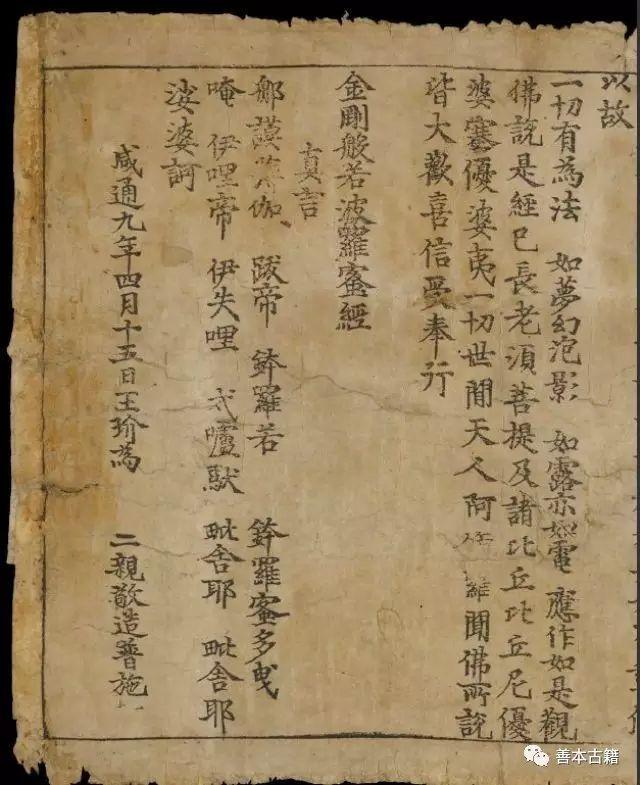 以故
一切有為法 如夢幻泡影 如露亦如電 應作如是觀
佛說是經已長老須菩提及諸比丘比丘尼優
婆塞優婆夷一切世間天人阿 羅聞佛所說
皆大歡喜信受奉行
金剛般若波羅蜜經
真言
那謨薄伽 跋帝 鉢羅若 鉢羅蜜多曳
唵 伊哩帝 伊失哩 戍嚧馱 毗舍耶 毗舍耶
娑婆訶
咸通九年四月十五日王玠為 二親敬造普施
善本古籍